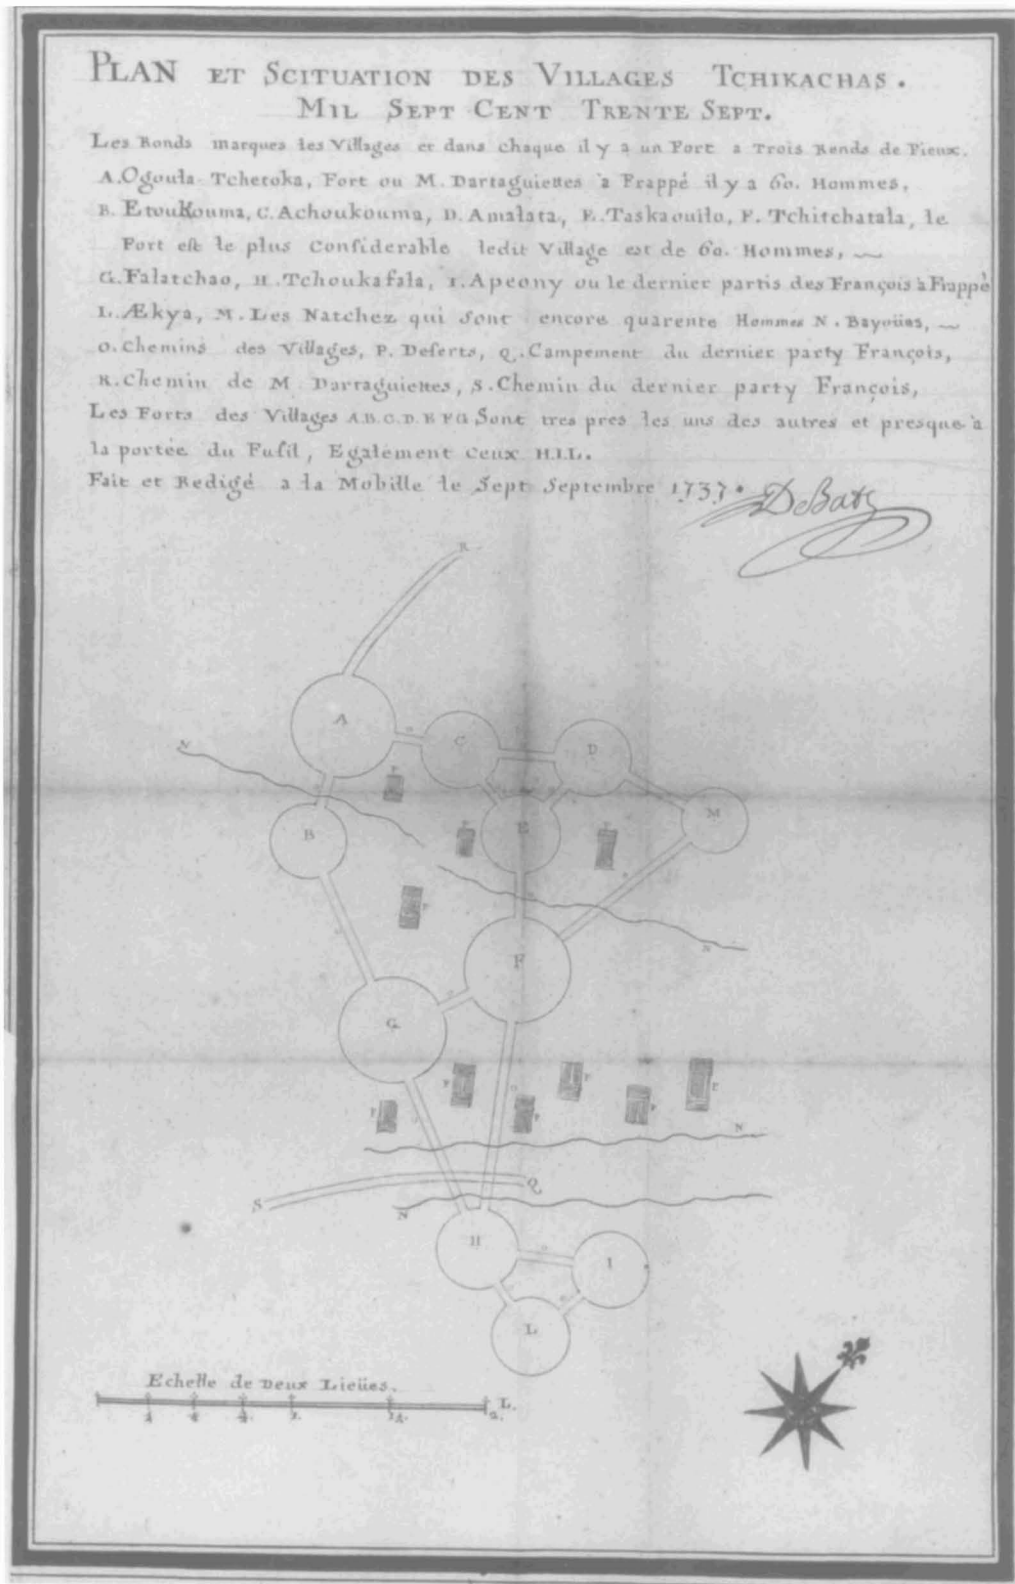 PLAN ET SCITUATION DES VILLAGES TCHIKACHAS.
MIL SEPT CENT TRENTE SEPT.
Les Ronds marques les Villages et dans chaque il y a un Fort a Trois Rends de Pieux.
A. Ogoula Tchetoka, Fort ou M. Dartaguiettes à Frappé il y a 60. Hommes,
B. Etoukouma, C. Achoukouma, D. Amalata, E. Taskaouilo, F. Tchitchatala, le
Fort est le plus Considerable ledit Village est de 60. Hommes,
G. Falatchao, H. Tchoukafala, I. Apeony ou le dernier partis des François à Frappé
L. Ækya, M. Les Natchez qui sont encore quarente Hommes N. Bayoües,
O. Chemins des Villages, P. Deserts, Q. Campement du dernier party François,
R. Chemin de M. Dartaguiettes, S. Chemin du dernier party François,
Les Forts des Villages A.B.C.D.E F G Sont tres pres les uns des autres et presque à
la portée du Fusil, Egalement Ceux H.I.L.
Fait et Redigé a la Mobille le Sept Septembre 1737. DeBatz
R
A
O
C
D
N
P
B
P
E
P
M
P
F
N
G
P
P
P
P
P
P
N
S
Q
N
H
O
I
L
Echelle de Deux Lieües.
L.